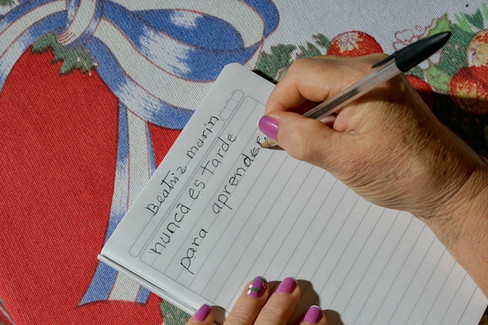 Beatriz marin
nunca es tarde
para aprender